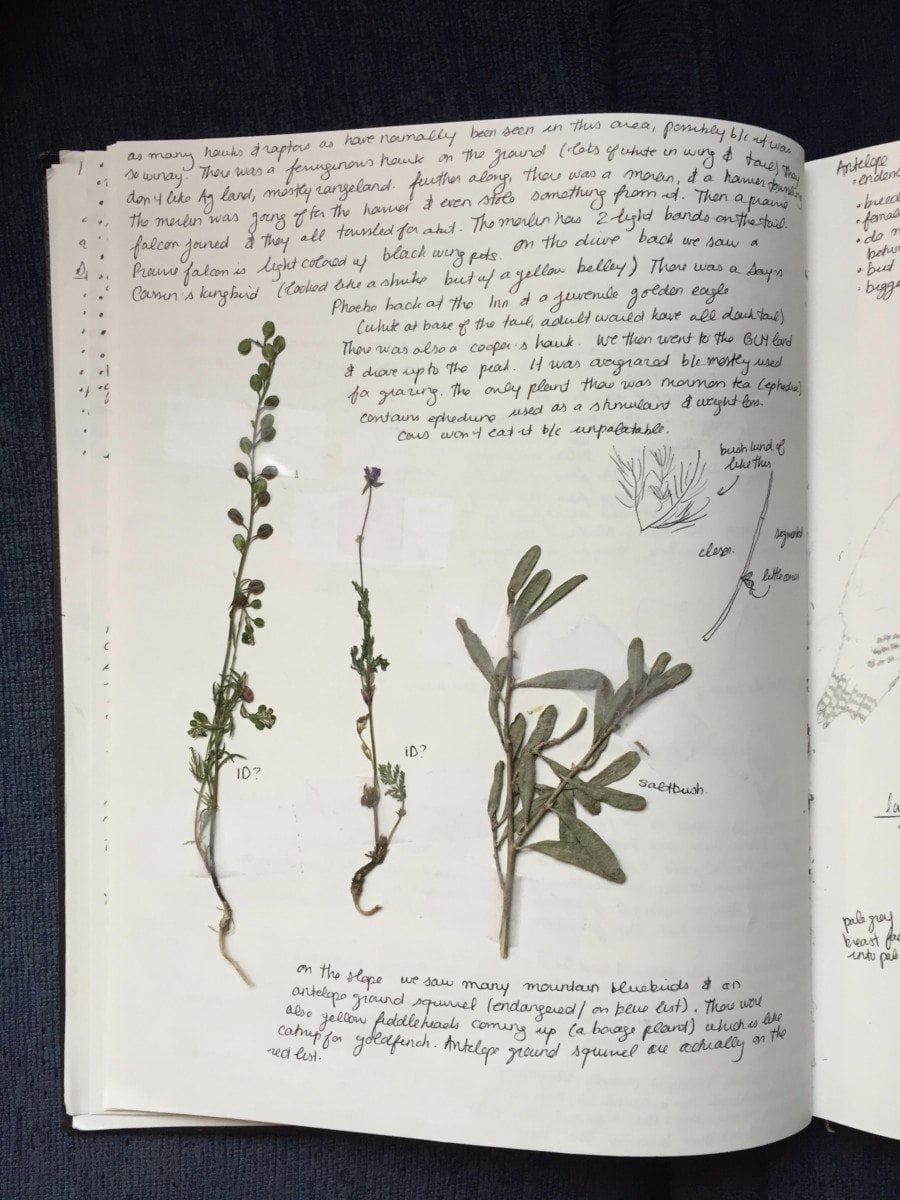 as many hawks & raptors as have normally been seen in this area, possibly b/c it was
so windy. There was a ferruginous hawk on the ground (lots of white in wing & tail) They
don't like Ag land, mostly rangeland. further along, there was a merlin, & a harrier
The merlin was going after the harrier & even stole something from it. Then a prairie
falcon joined & they all tousled for a bit. The merlin has 2 light bands on the tail.
Prairie falcon is light colored w/ black wing pits. on the drive back we saw a
Cassin's kingbird (looked like a shrike but w/ a yellow belley) There was a Say's
Phoebe back at the Inn & a juvenile golden eagle
(white at base of the tail, adult would have all dark tail)
There was also a cooper's hawk. We then went to the BLM land
& drove up to the peak. It was overgrazed b/c mostly used
for grazing. The only plant there was mormon tea (ephedra)
contains ephedrine used as a stimulant & weight loss.
cows won't eat it b/c unpalatable.
bush kind of
like this
closer.
segmented
little cones
ID?
ID?
saltbush.
on the slope we saw many mountain bluebirds & an
antelope ground squirrel (endangered/on blue list). There were
also yellow fiddleheads coming up (a borage plant) which is like
catnip for goldfinch. Antelope ground squirrel are actually on the
red list.
Antelope
• endem
• breed
• female
• do n
betw
• but
• bigge
pale grey
breast fa
into pal